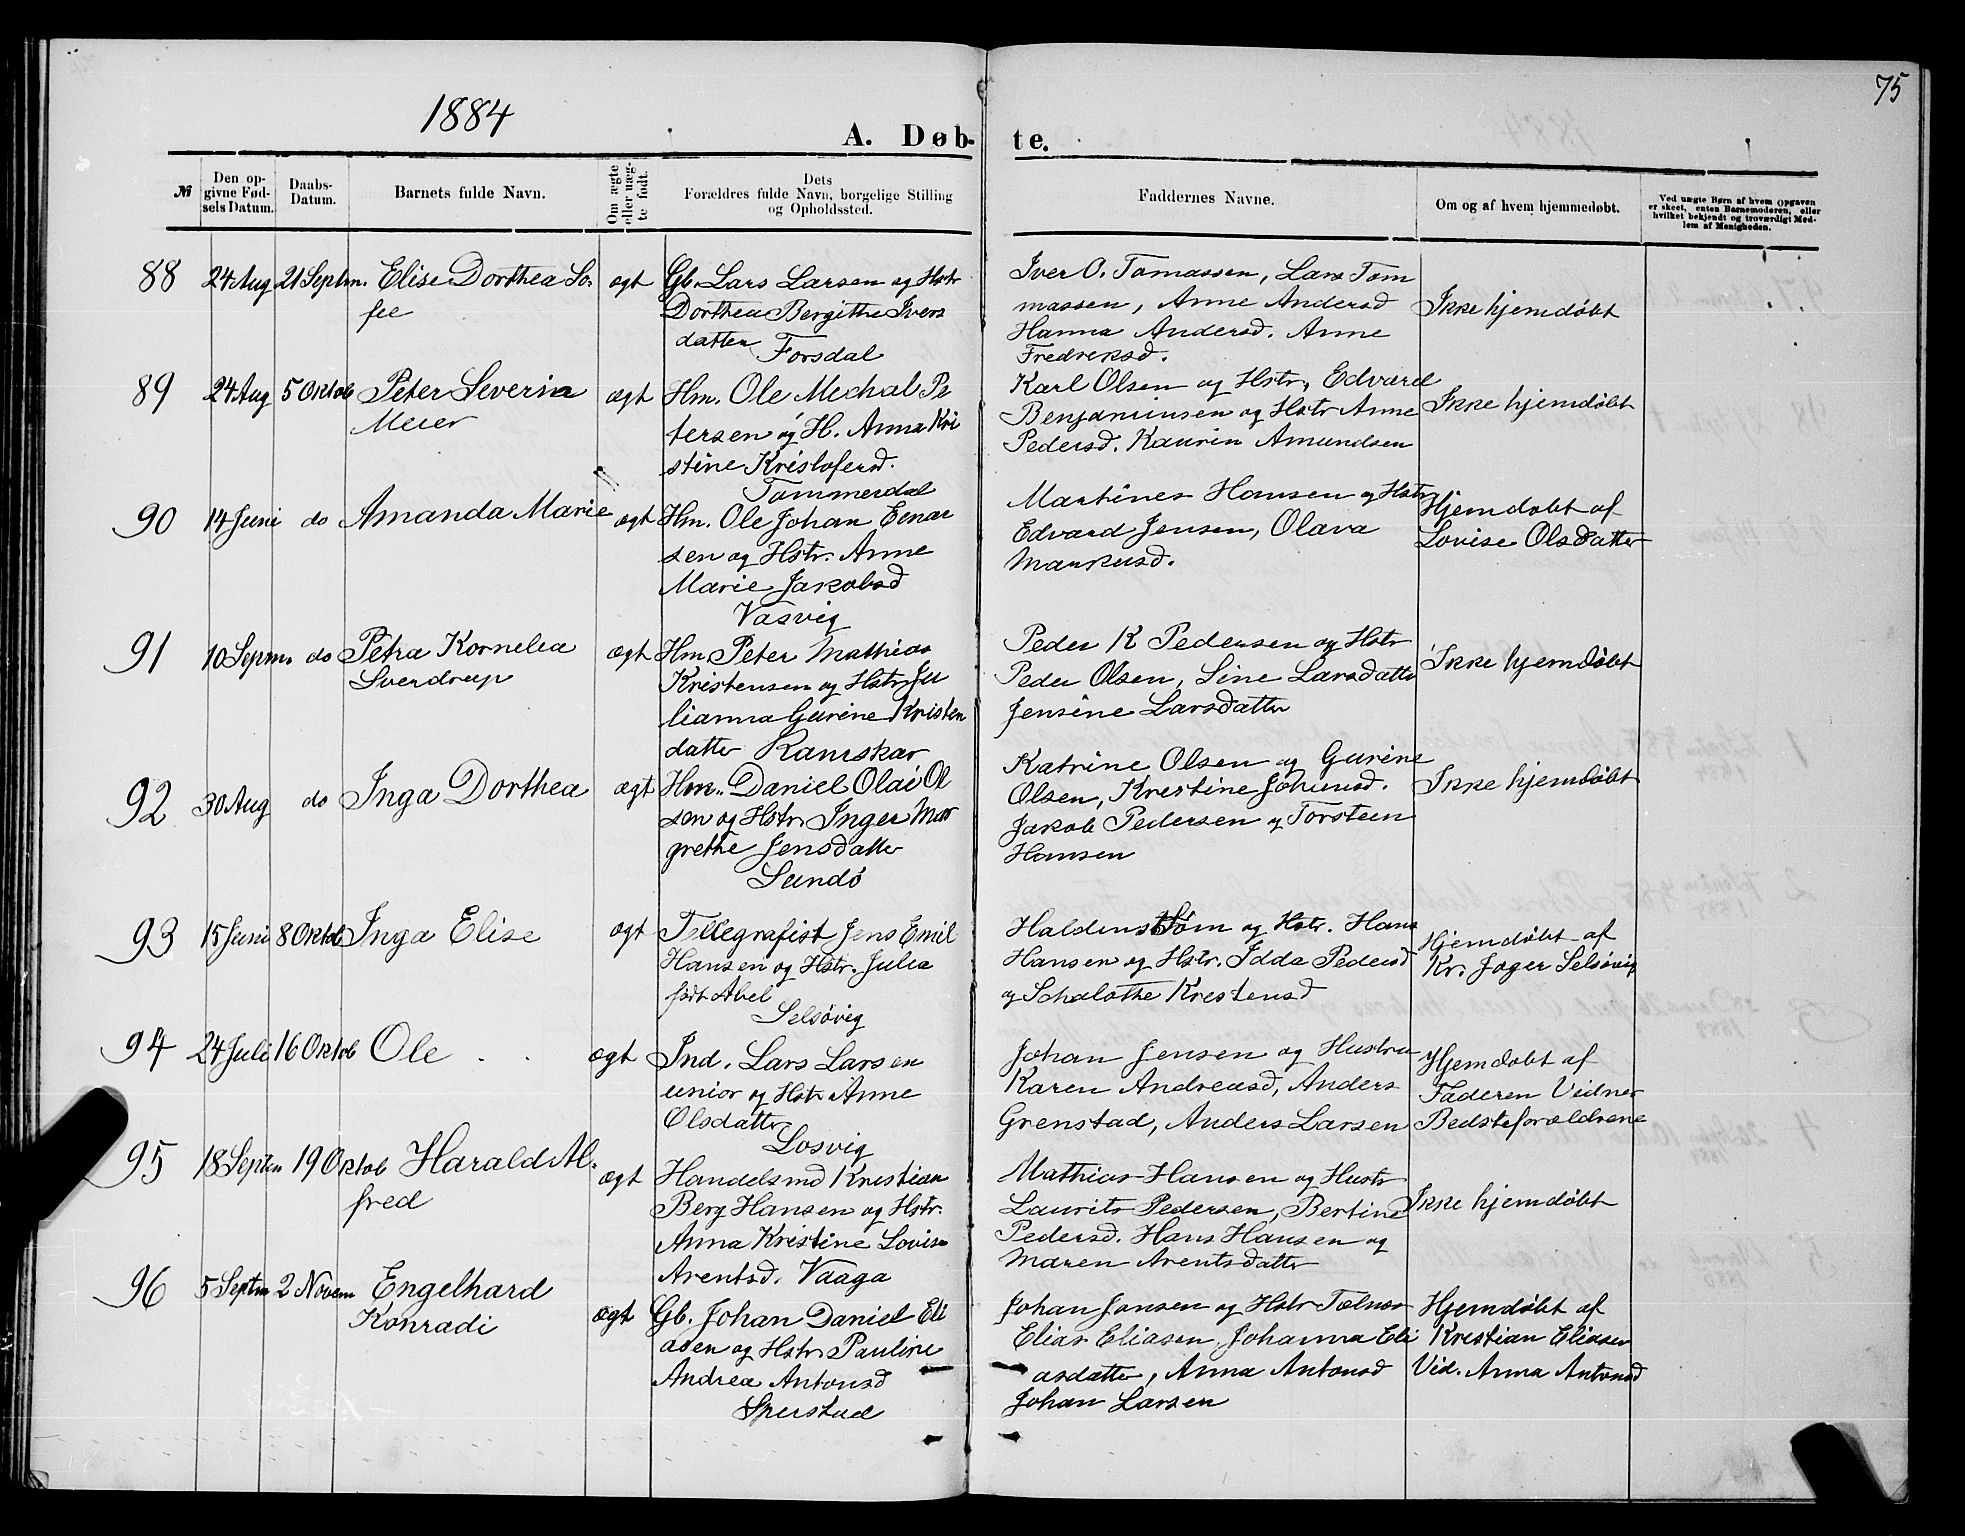 75
1884
A. Døb-
te.
№
Den op-
givne Fød-
sels Datum.
Daabs-
Datum.
Barnets fulde Navn.
Om ægte
eller uæg-
te født.
Dets
Forældres fulde Navn, borgelige Stilling
og Opholdssted.
Faddernes Navne.
Om og af hvem hjemmedøbt.
Ved uægte Børn af hvem opgaven
er skeet, enten Barnemoderen, eller
hvilket bekjendt og troværdigt Med-
lem af Menigheden.
88 24 Aug 21 Septm. Elise Dorthea So-
fie
ægt
Gb. Lars Larsen og Hstr
Dorthea Bergitthe Ivers
datter Forsdal
Iver O. Tomassen, Lars Tom
massen, Anne Andersd
Hanna Andersd. Anne
Fredreksd.
Ikke hjemdøbt
89 24 Aug 5 Oktob Peter Severin
Meier
ægt
Hm. Ole Mechal Pe
tersen og H. Anna Kri
stine Kristofersd.
Tømmerdal
Karl Olsen og Hstr, Edvard
Benjaminsen og Hstr Anne
Pedersd. Kaurin Amundsen
Ikke hjemdøbt
90 14 Juni do Amanda Marie
ægt
Hm. Ole Johan Eenar
sen og Hstr. Anne
Marie Jakobsd
Vasvig
Martines Hansen og Hstr
Edvard Jensen, Olava
Markusd.
Hjemdøbt af
Lovise Olsdatter
91 10 Septm. do Petra Kornelea
Sverdrup
ægt
Hm. Peter Mathias
Kristensen og Hstr Ju
lianna Gurine Kristen
datter Ramskar
Peder K Pedersen og Hstr
Peder Olsen, Line Larsdatte
Jensine Larsdatter
Ikke hjemdøbt
92 30 Aug do Inga Dorthea
ægt
Hm. Daniel Olai Ol
sen og Hstr. Inger Mar
grethe Jensdatter
Sundø
Katrine Olsen og Gurine
Olsen, Krestine Johansd.
Jakob Pedersen og Torsteen
Hansen
Ikke hjemdøbt
93 15 Juni 8 Oktob Inga Elise
ægt
Tellegrafist Jens Emil
Hansen og Hstr. Julia
født Abel
Selsøvig
Haldenstrøm og Hstr. Hans
Hansen og Hstr. Idda Pedersd
og Schalotte Krestensd
Hjemdøbt af
Kr. Jæger Selsøvig
94 24 Juli 16 Oktob Ole
ægt
Ind. Lars Larsen
junior og Hstr Anne
Olsdatter
Losvig
Johan Jensen og Hustru
Karen Andreasd, Anders
Grenstad, Anders Larsen
Hjemdøbt af
Faderen Vidner
Bedsteforældrene
95 18 Septm 19 Oktob Harald Al-
fred
ægt
Handelsmd Kristian
Berg Hansen og Hstr.
Anna Kristine Lovise
Arentsd. Vaaga
Mathias Hansen og Hustr
Laurits Pedersen, Bertine
Pedersd. Hans Hansen og
Maren Arentsdatter
Ikke hjemdøbt
96 5 Septm 2 Novem Engelhard
Konradi
ægt
Gb. Johan Daniel Eli
asen og Hstr. Pauline
Andrea Antonsd
Sperstad
Johan Jansen og Hstr Tælnes
Elias Eliasen, Johanna Eli
asdatter, Anna Antonsd
Johan Larsen
Hjemdøbt af
Kristian Eliasen
Vid. Anna Antonsd